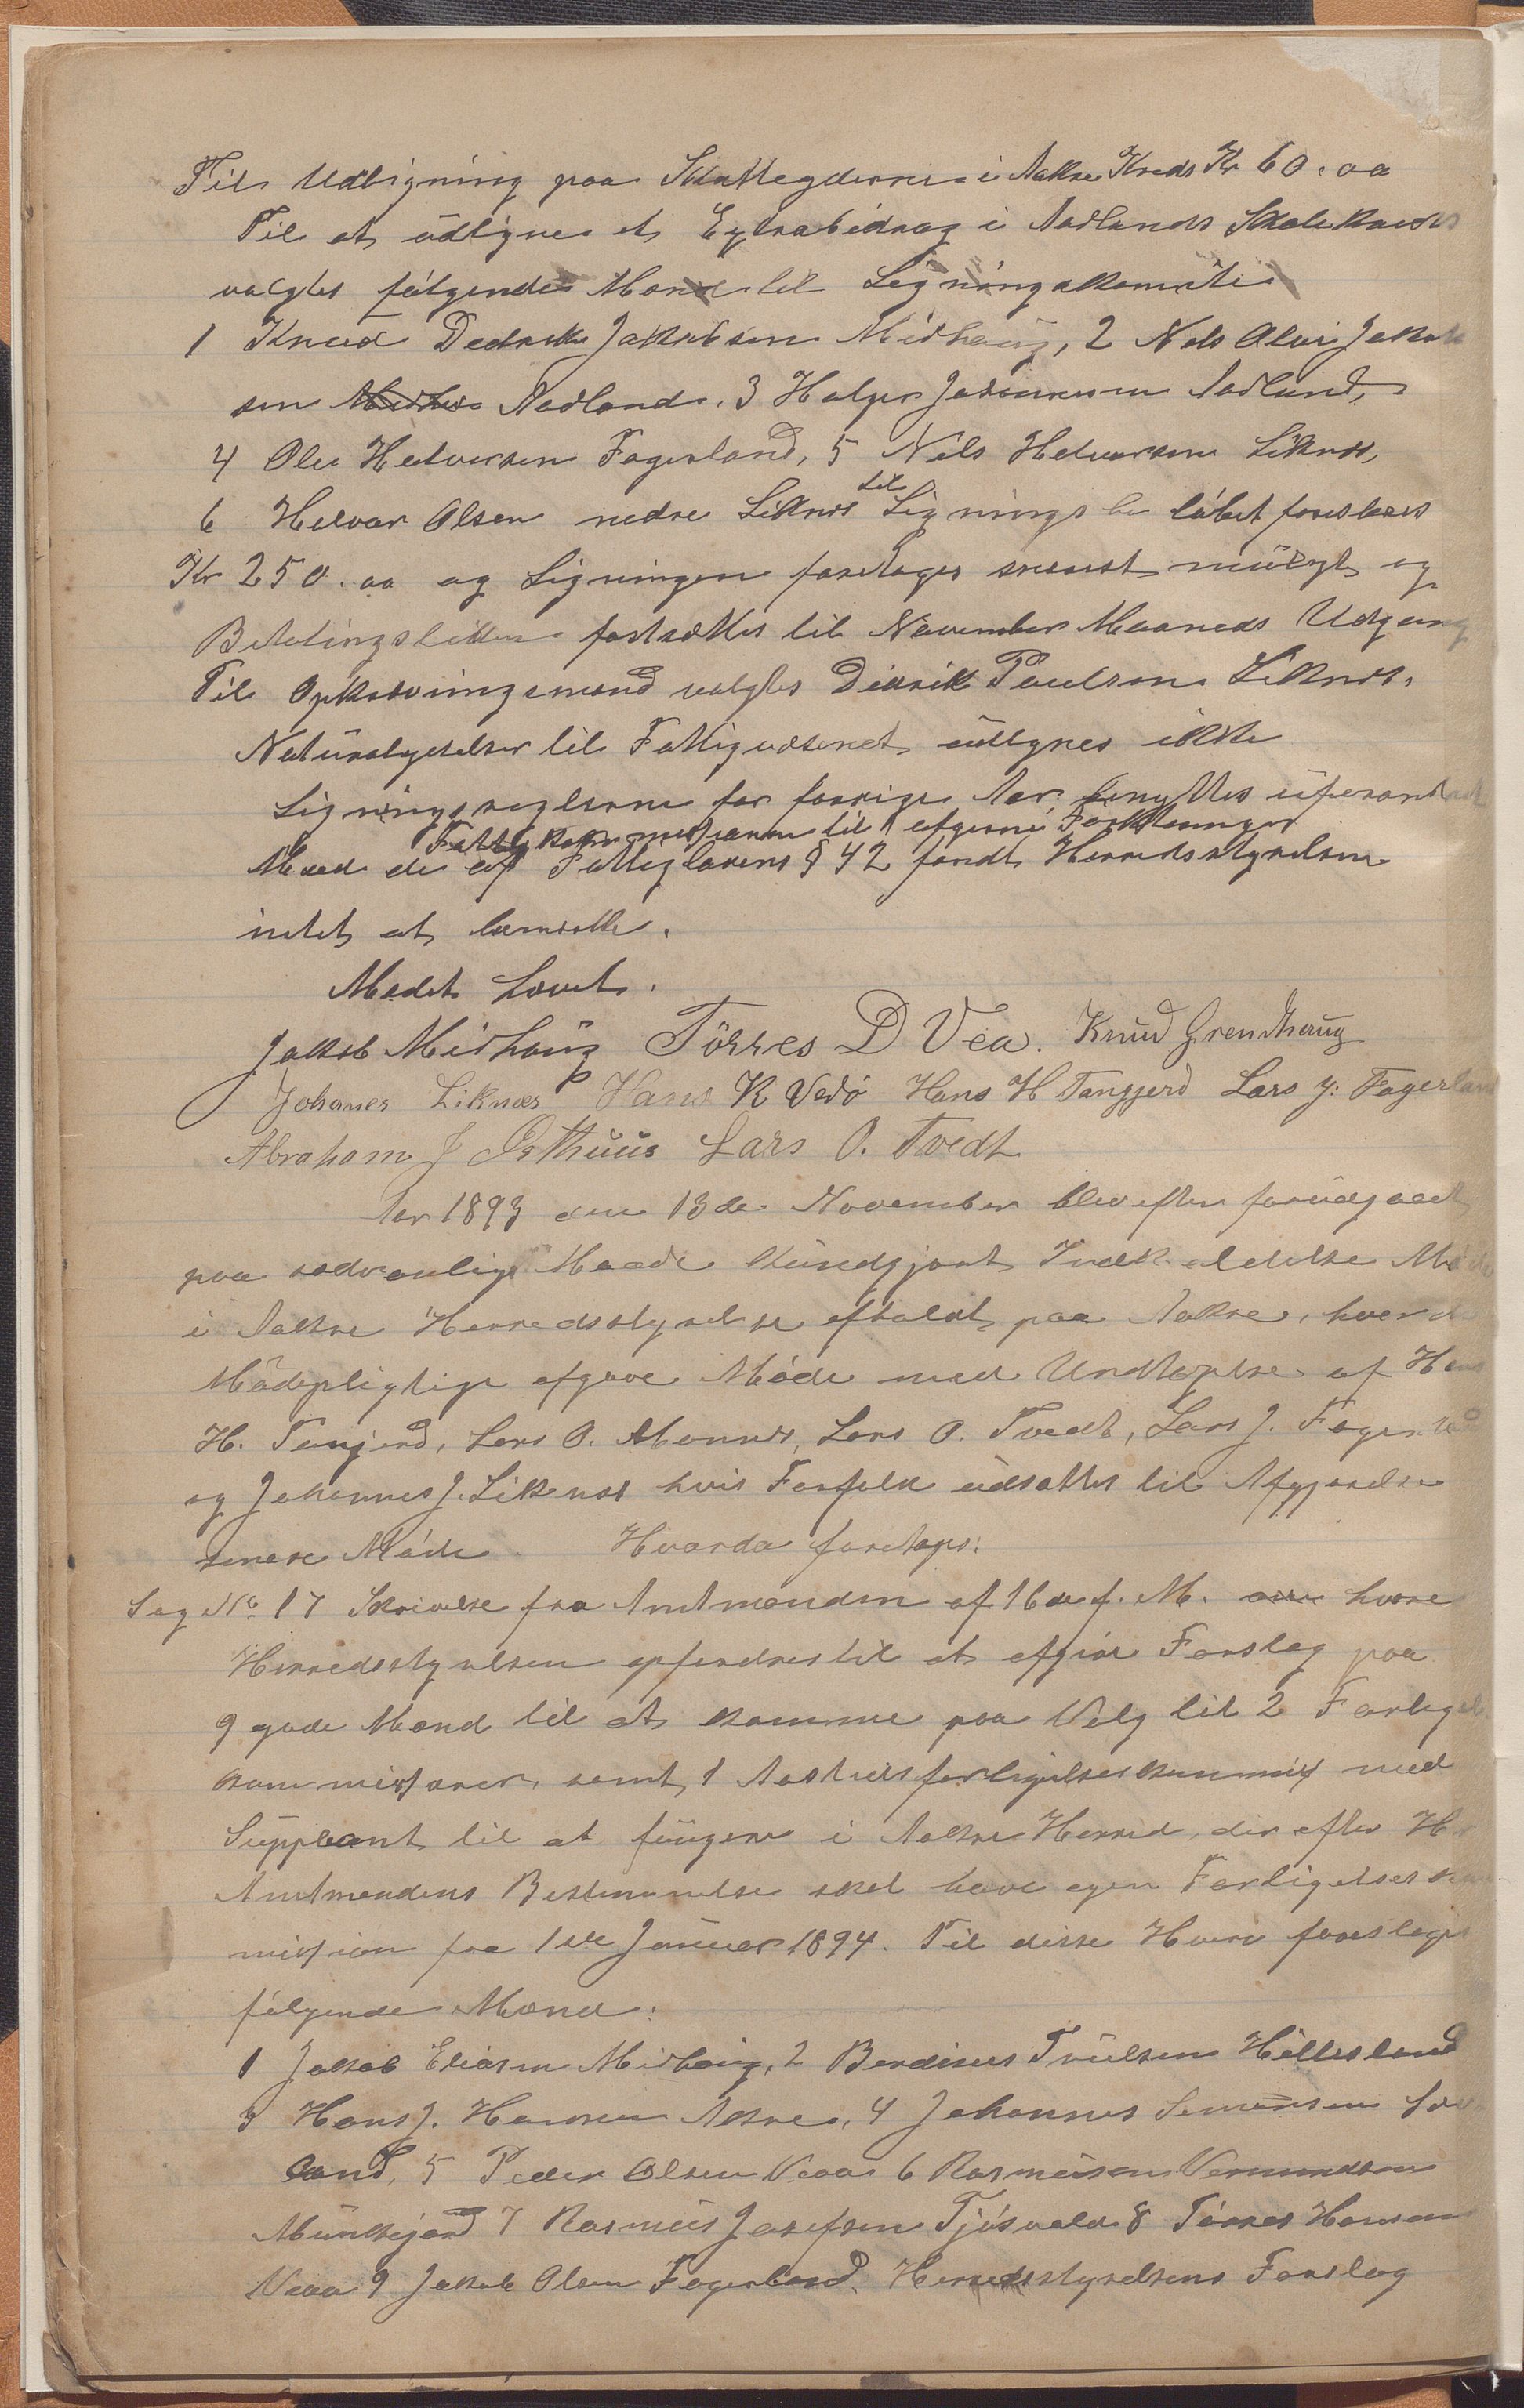 Til Udligning paa Skatteyderne i Aakre Kreds Kr 60.00
Til at udligne et Extrabidrag i Aadlands Skolekreds
valgtes følgende Mænd til Ligningskomite
1 Knud Jakobsen Midhaug, 2 Nels Olai Jakob
sen Aadland. 3 Holger Aadland,
4 Ole Helversen Fagerland, 5 Nils Helversen Liknes,
6 Helvar Olsen nedre Liknes til Ligningsbeløbet foreslaaes
Kr 250.00 og Ligningen foretages snarest muligt og
Betalingstiden fastsættes til November Maaneds Udgang
Til Opkrævningsmand valgtes Didrik Paulsen Liknes.
Naturalydelser til Fattigvæsenet udlignes ikke
Ligningsreglerne for forrige Aar benyttes uforandret
Fattigkommissionen til afgivne Forklaringer
Mæd de af Fattiglovens § 42 fandt Herredsstyrelsen
intet at bemærke.
Mødet hævet.
Jakob Midhaug Törres D Vea. Knud Grindhaug
Johanes Liknæs Hans K Vedø Hans H Tangjerd Lars J. Fagerland
Abraham J Østhuus Lars O. Tvedt
Aar 1893 den 13de November blev efter forudgaaet
paa sædvanlig Maade kundgjort Indkaldelse Møde
i Aakre Herredsstyrelse afholdt paa Aakre, hvor de
Mödepligtige afgave Møde med Undtagelse af Hans
H. Tangjerd, Lars O. Munnes, Lars O. Tvedt, Lars J. Fagerland
og Johannes J. Liknes hvis Forfald udsattes til Afgjørelse
senere Møde. Hvorda foretoges:
Sag No 17 Skrivelse fra Amtmanden af 16de f. M. hvore
Herredsstyrelsen opfordres til at afgive Forslag paa
9 gode Mænd til at komme paa Valg til 2 Forligel
kommissærer, samt 1 forligelseskommis med
Suppleant til at fungere i Aakre Herred, der efter Hr
Amtmandens Bestemmelse skal have egen Forligelseskom
mission fra 1ste Januar 1894. Til disse Hverv foreslages
følgende Mænd:
1 Jakob Eliasen Midhaug, 2 Berdinus Truulsen Hillesland
3 Hans J. Hansen Aakre, 4 Johannes Simonsen Sæve
land, 5 Peder Olsen Veaa 6 Rasmus Vermundsen
Munkejord 7 Rasmus Josefsen Tjøsvold 8 Törres Hansen
Veaa 9 Jakob Olsen Fagerland. Herredsstyrelsens Forslag